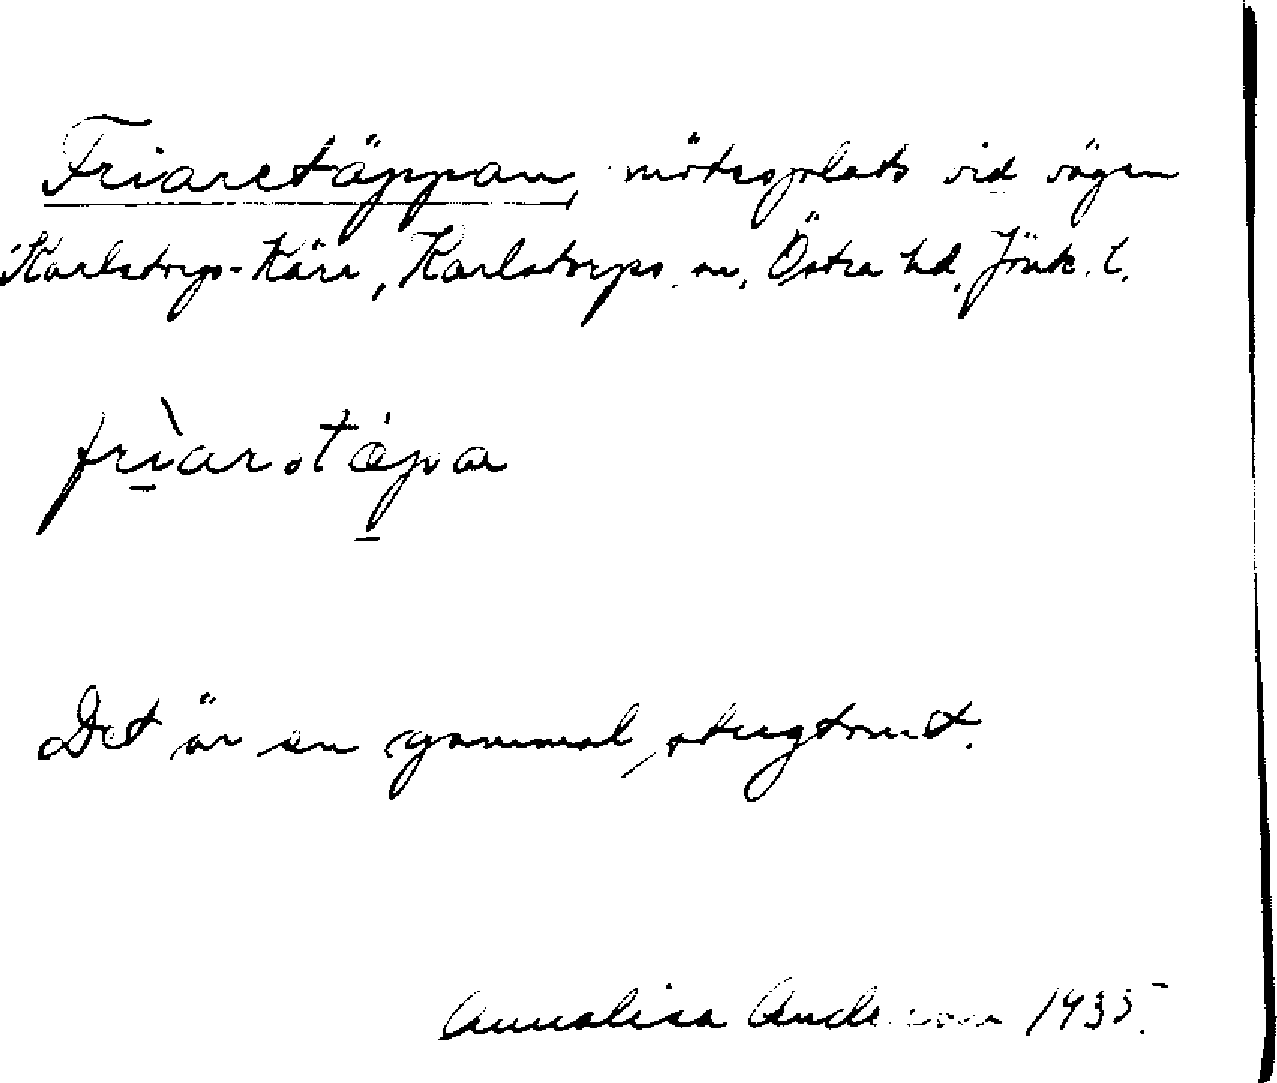 Friaretäppan, mötesplats vid vägen
Karlstorp-Kärr, Karlstorps sn, Östra hd, Jönk. l.
frìar.tä́pa
Det är en gammal stugtomt.
Annalisa Anderson 1935.